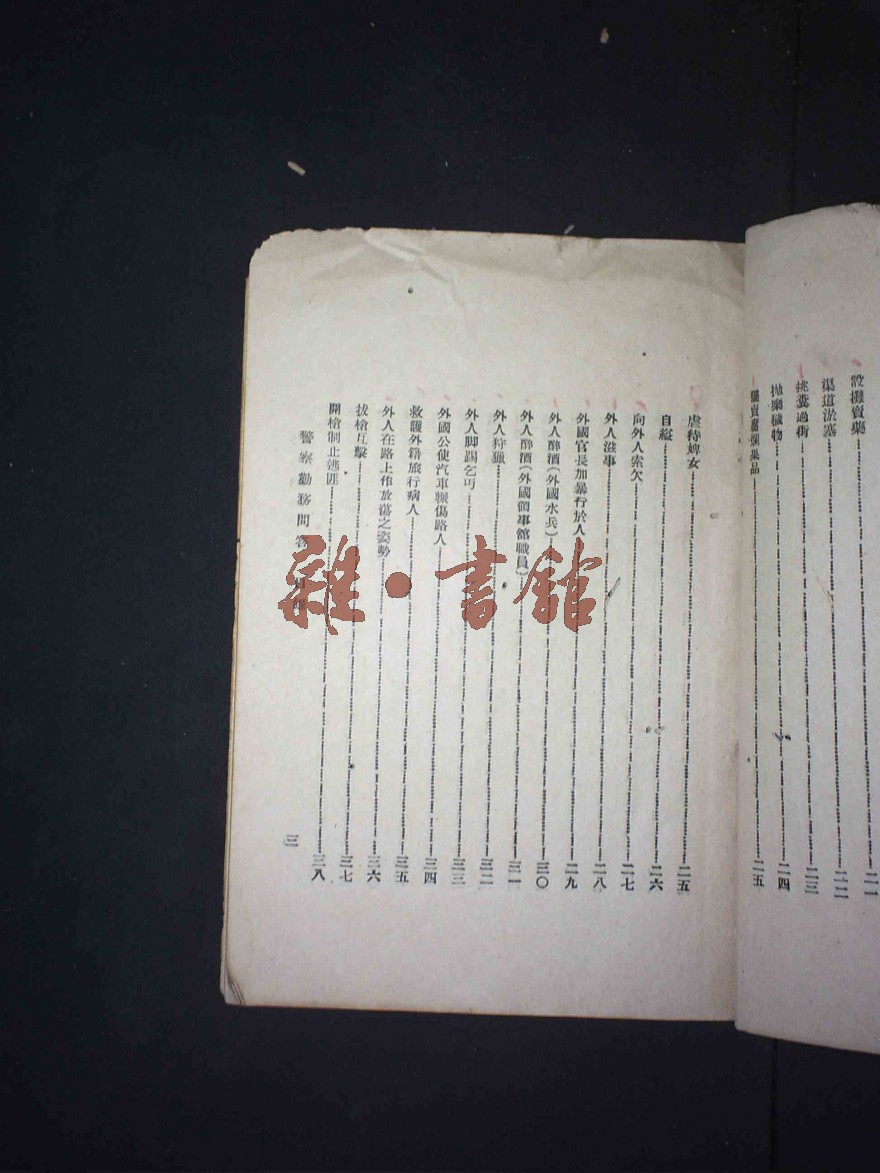 設攤賣藥……二一
渠道淤塞……二二
挑糞過街……二三
拋棄穢物……二四
擺賣腐爛果品……二五
虐待婢女……二五
自縊……二六
向外人索欠……二七
外人滋事……二八
外國官長加暴行於人……二九
外人醉酒(外國水兵)……三〇
外人醉酒(外國領事館職員)……三一
外人狩獵……三二
外人脚踢乞丐……三三
外國公使汽車輾傷路人……三四
救護外籍旅行病人……三五
外人在路上作放蕩之姿勢……三六
拔槍互擊……三七
開槍制止逃匪……三八
警察勤務問答 目錄
三
雜·書館